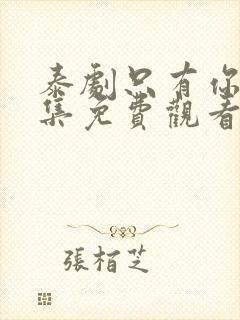 泰劇只有你
集免費觀看
張栢芝